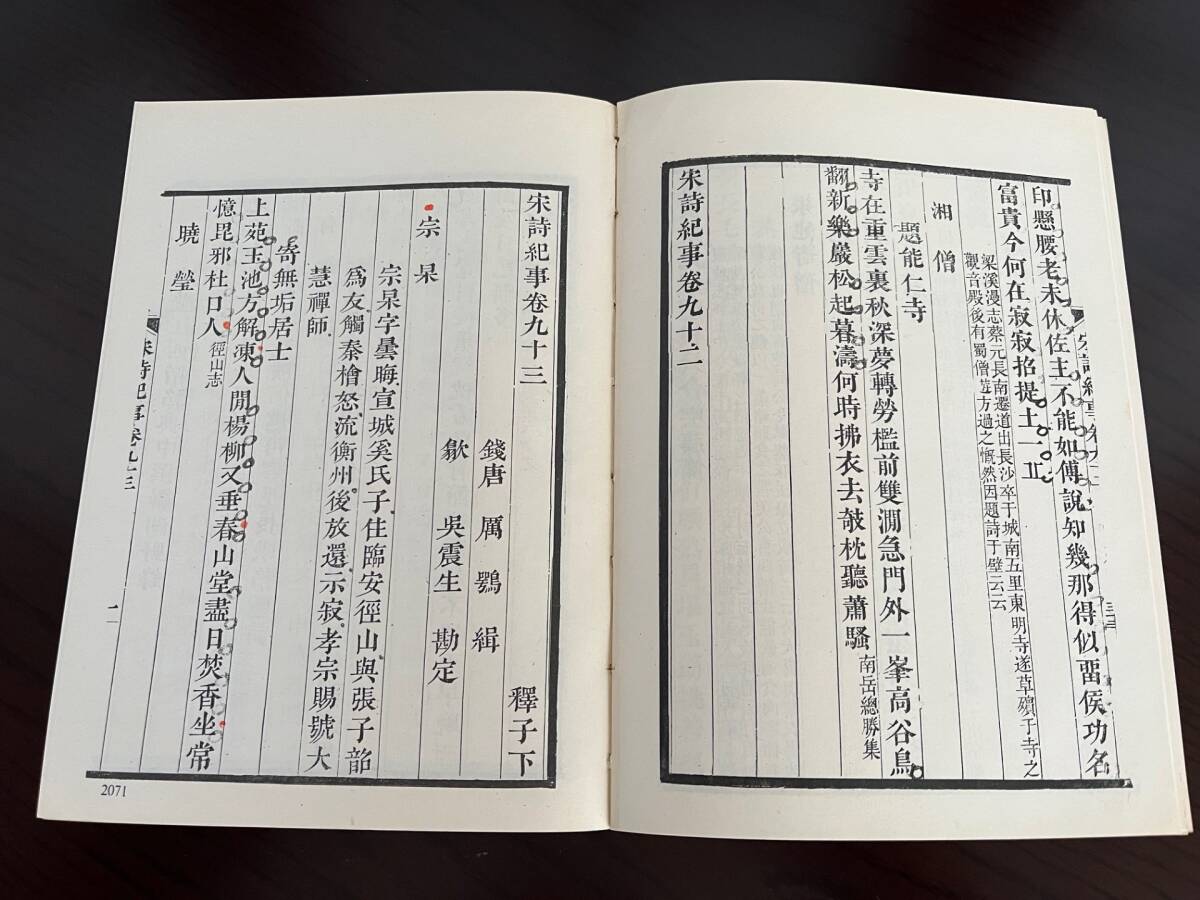 印懸腰老未休佐主不能如傅說知幾那得似畱侯功名
富貴今何在寂寂招提土一丘
梁溪漫志蔡元長南遷道出長沙卒于城南五里東明寺遂草殯于寺之
觀音殿後有蜀僧遊方過之慨然因題詩于壁云云
湘僧
題能仁寺
寺在重雲裏秋深夢轉勞檻前雙澗急門外一峯高谷鳥
翻新樂巖松起暮濤何時拂衣去欹枕聽蕭騷南岳總勝集
宋詩紀事卷九十二
宋詩紀事卷九十三
釋子下
錢唐 厲鶚 緝
歙 吳震生 勘定
宗杲
宗杲字曇晦宣城奚氏子住臨安徑山與張子韶
爲友觸秦檜怒流衡州後放還示寂孝宗賜號大
慧禪師
寄無垢居士
上苑玉池方解凍人閒楊柳又垂春山堂盡日焚香坐常
憶毘邪杜口人徑山志
曉瑩
宋詩紀事卷九十三
一
2071